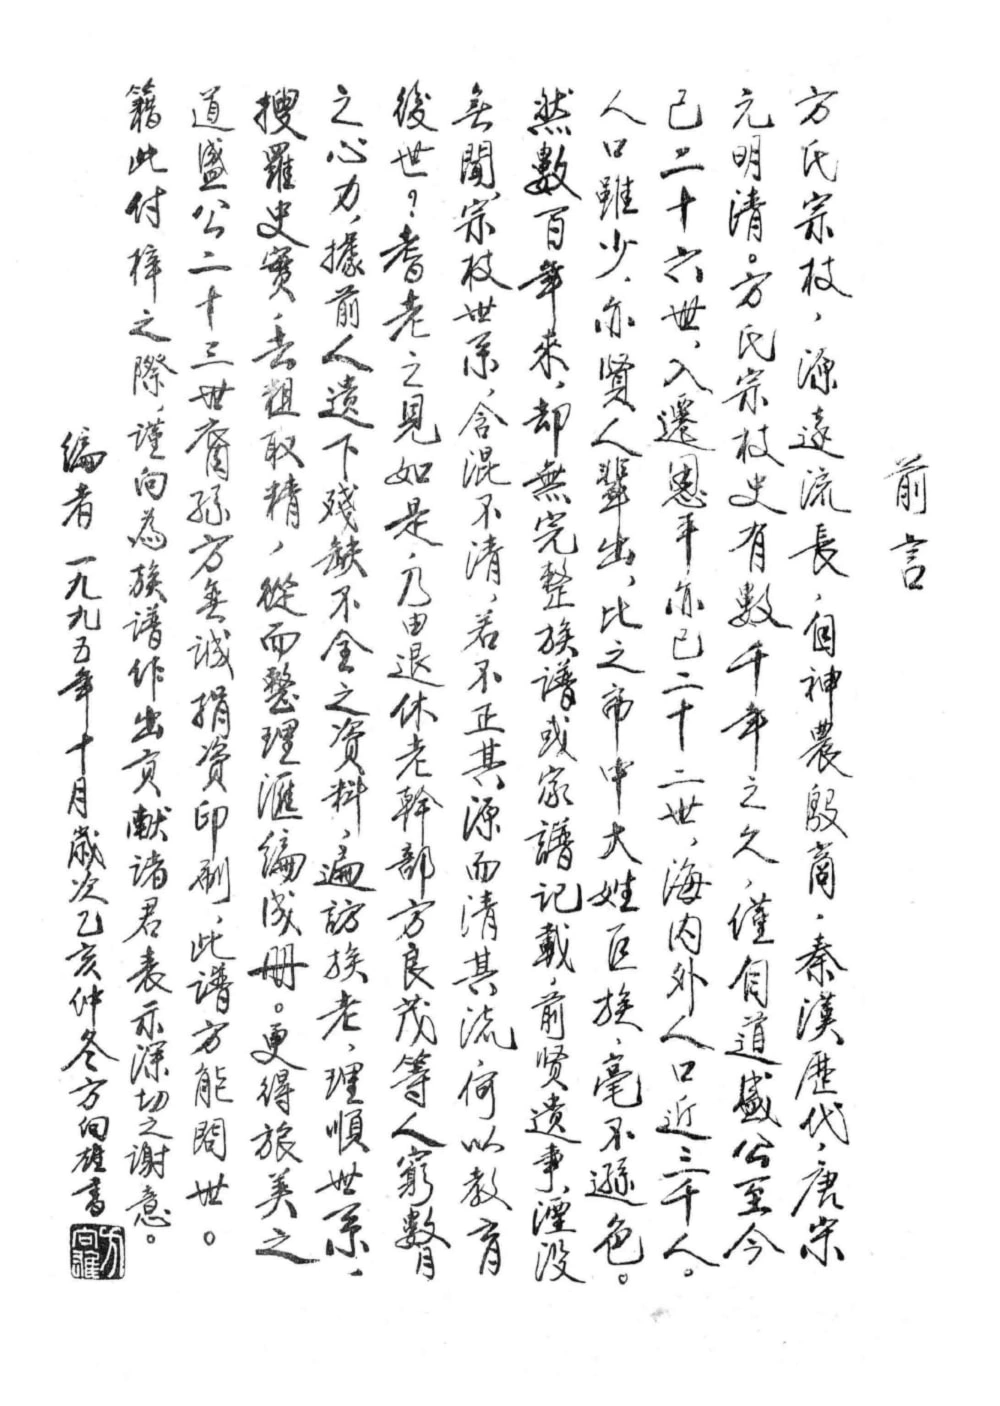 前言
方氏宗枝，源遠流長，自神農殷商，秦漢歷代，唐宗
元明清。方氏宗枝史有數千年之久，僅自道盛公至今
已二十六世，入遷恩平亦已二十二世，海內外人口近三千人。
人口雖少，亦賢人輩出，比之帝中大姓巨族，毫不遜色。
然數百年來，却無完整族譜或家譜記載，前賢遺事，湮没
無聞，宗枝世系，含混不清，若不正其源而清其流，何以教育
後世？耆老之見如是，乃由退休老幹部方良茂等人窮數月
之心力，據前人遺下殘缺不全之資料，遍訪族老，理順世系，
搜羅史實，去粗取精，從而整理滙编成册。更得旅美之
道盛公二十三世裔孫方無诚捐資印刷，此譜方能問世。
籍此付梓之際，謹向為族譜作出貢献諸君表示深切之謝意。
编者一九九五年十月歲次乙亥仲冬方向雄書
方向雄